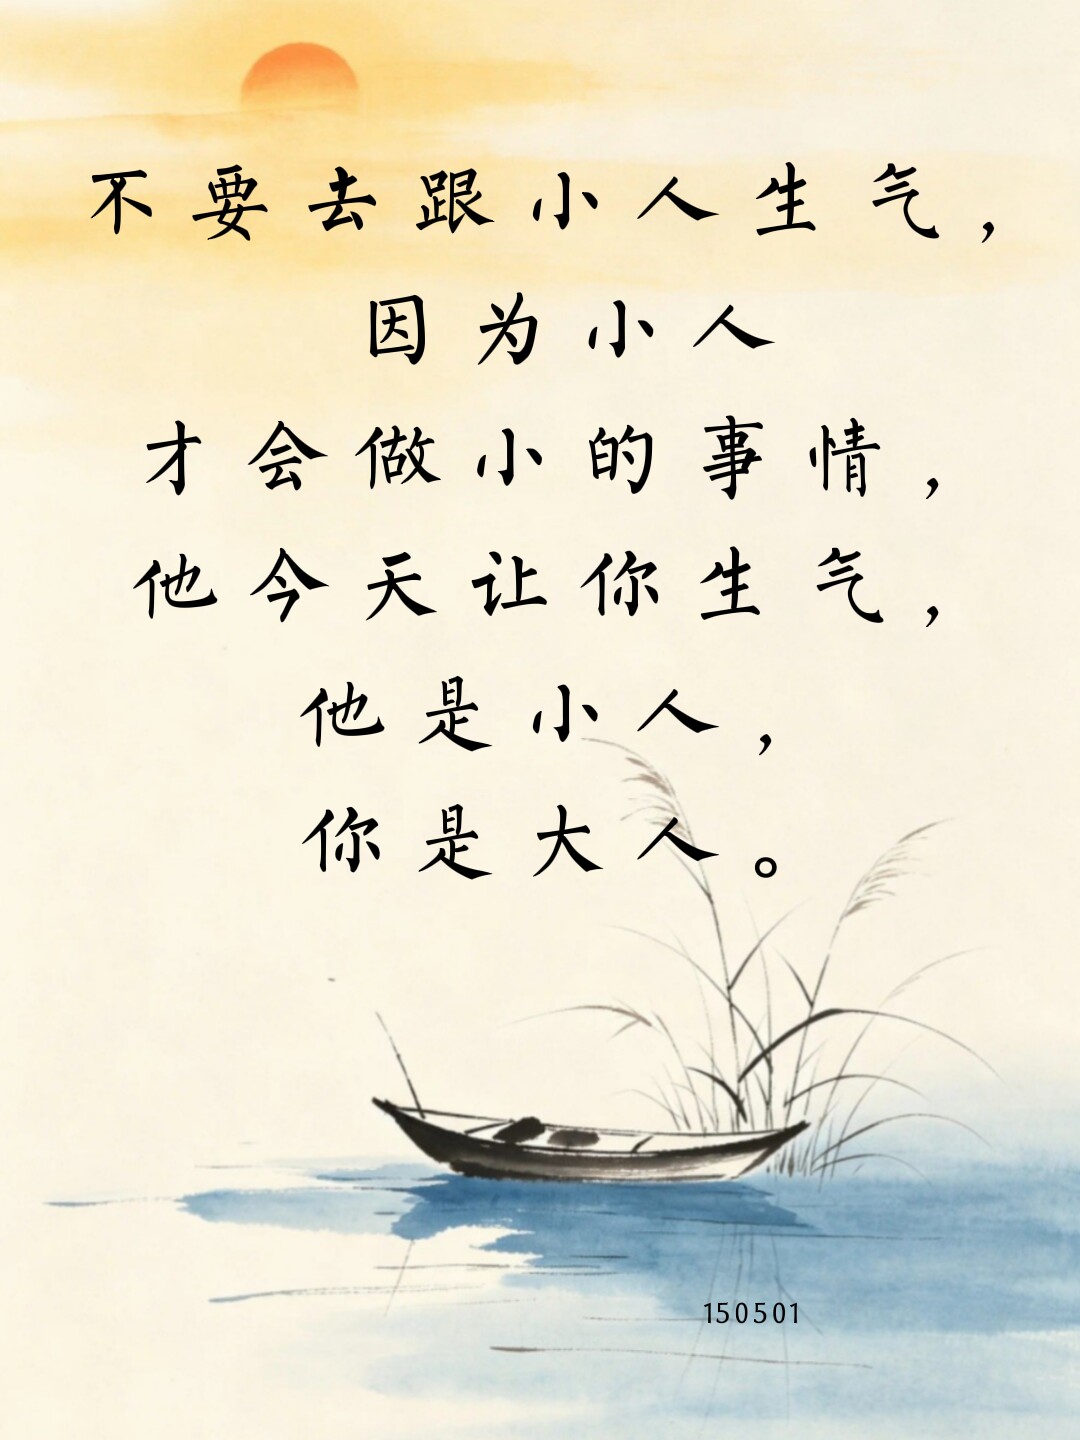 不要去跟小人生气，
因为小人
才会做小的事情，
他今天让你生气，
他是小人，
你是大人。
150501